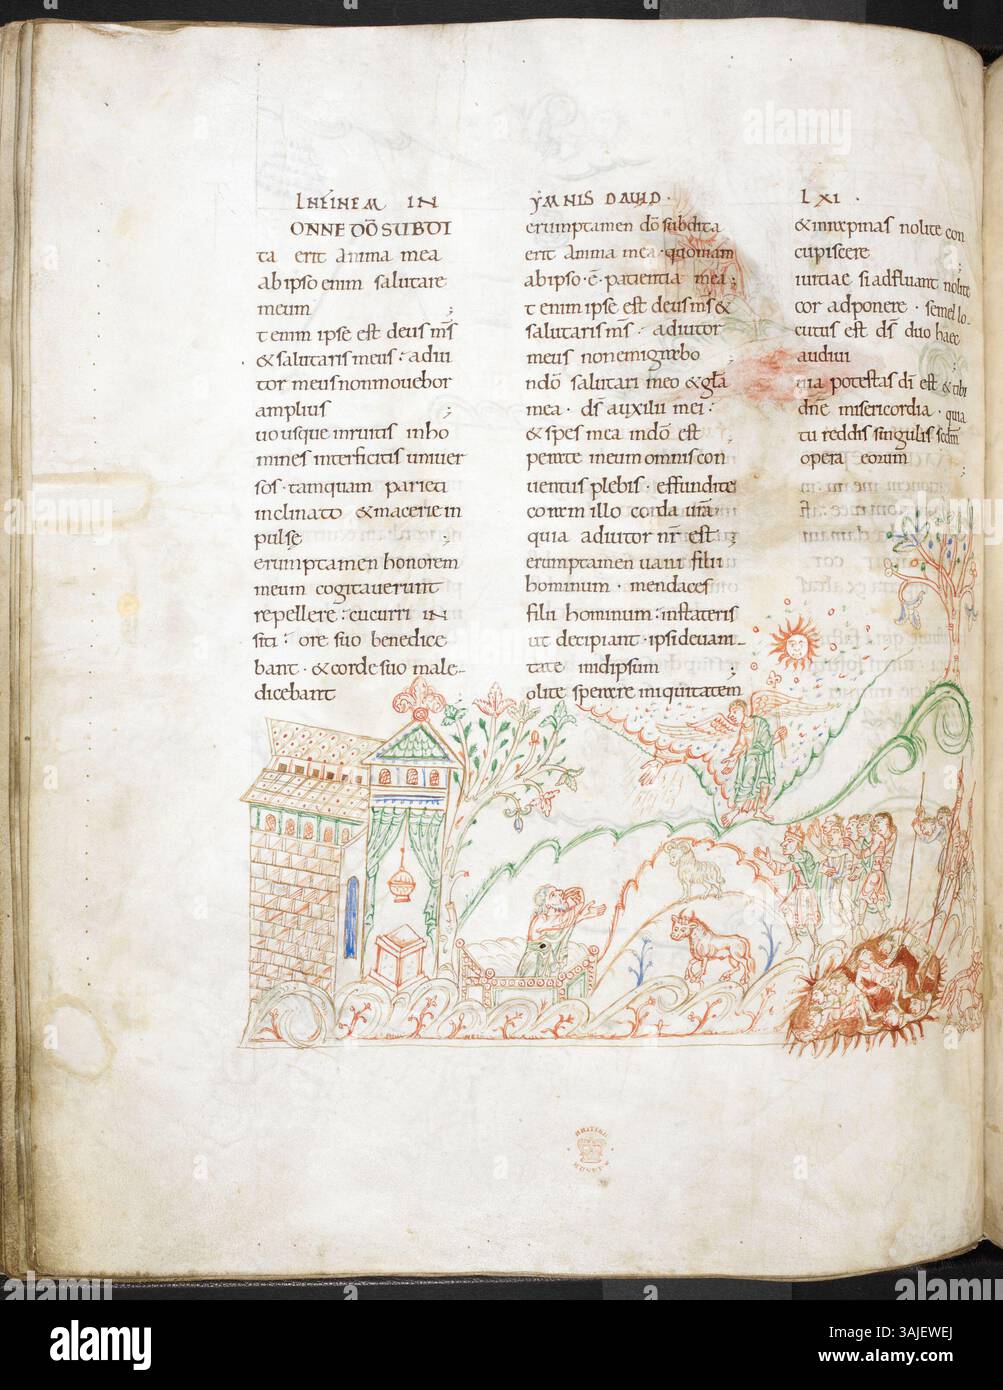 IN FINEM IN YMNIS DAVID · LXI ·
ONNE DŌ SUBDI
ta erit anima mea
ab ipso enim salutare
meum ;
t enim ipse est deus m̄s
& salutaris meus : adiu
tor meus non mouebor
amplius ;
uo usque inruitis in ho
mines interficitis uniuer
sos · tamquam parieti
inclinato & macerie in
pulsę ;
erumptamen honorem
meum cogitauerunt
repellere : cucurri IN
siti : ore suo benedice
bant · & corde suo male-
dicebant
erumptamen dō subdita
erit anima mea · quoniam
ab ipso · ē · patientia mea ;
t enim ipse est deus m̄s &
salutaris m̄s · adiutor
meus non emigrabo ;
n dō salutari meo & gl̄a
mea · d̄s auxilii mei :
& spes mea in dō est ;
perate in eum omnis con
uentus plebis · effundite
coram illo corda ur̄a
quia adiutor nr̄ est ;
erumptamen uani filii
hominum · mendaces
filii hominum : in stateris
ut decipiant · ipsi de uani-
tate in idipsum ;
olite sperare in iniquitatem
& in rapinas nolite con
cupiscere
iuitiae si adfluant nolite
cor adponere · semel lo-
cutus est d̄s duo haec
audiui
uia potestas dī est & tibi
dn̄e misericordia · quia
tu reddis singulis scdm̄
opera eorum ;
BRITISH
MUSEUM
alamy
Image ID: 3AJEWEJ
www.alamy.com